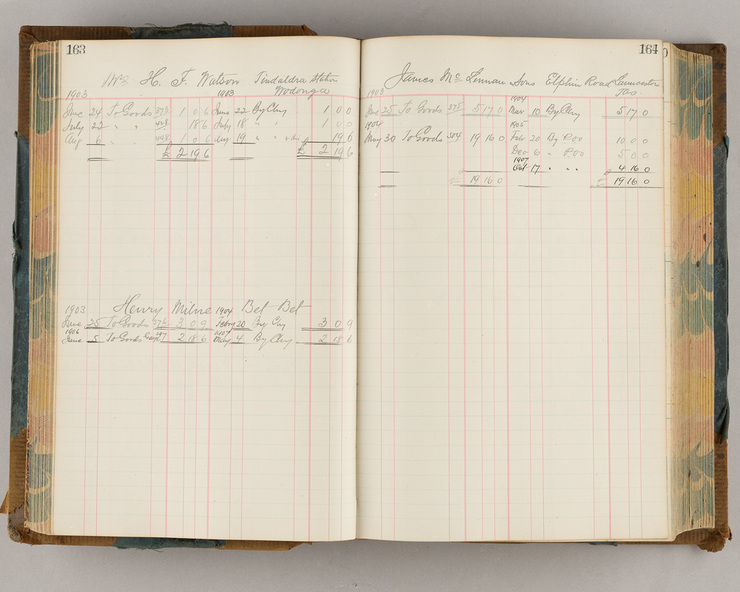 163
Mrs H. F. Watson Tindaldra Station
1903 1903 Wodonga
June 24 To Goods 373 1 0 6 June 22 By Chq 1 0 0
July 22 " " 18 6 July 18 " " 1 0 0
Aug 6 " " 1 0 6 Aug 19 " " 19 6
£ 2 19 6 £ 2 19 6
1903 Henry Milne 1904 Bet Bet
June 25 To Goods 3 0 9 Feby 20 By Chq 3 0 9
1906 1907
June 5 To Goods 2 18 6 May 4 By Chq 2 18 6
164
James Mc Sons Elphin Road Launceston
1903 1904 Tas
June 25 To Goods 375 5 17 0 Mar 10 By Chq 5 17 0
1904 1905
May 30 To Goods 504 19 16 0 Feb 20 By POO 10 0 0
Dec 6 " POO 5 0 0
1907
Oct 17 " " 4 16 0
£ 19 16 0 £ 19 16 0